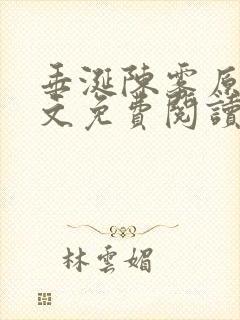 垂涎陳雾原
文免費閱讀
林雲媚